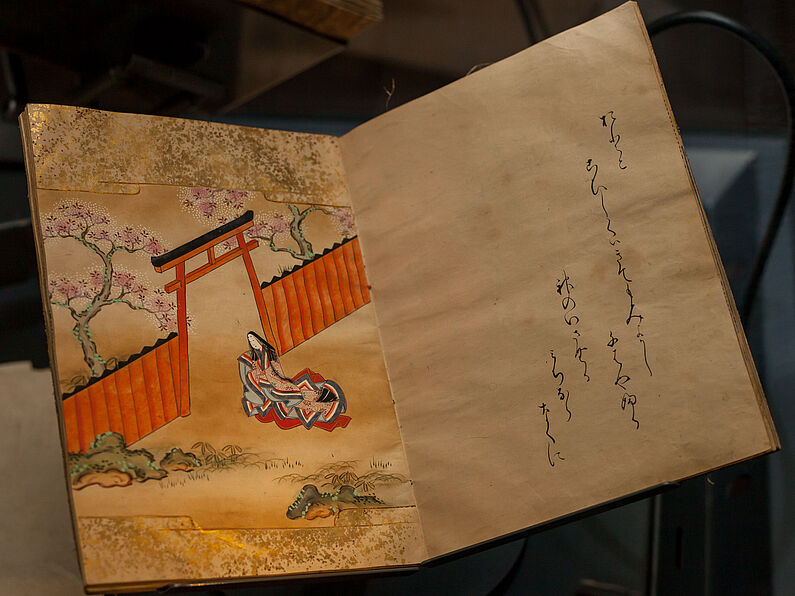 おとこ
こひしくはきてもみよかし
ちはやふる
神のいさむる
みちなら
なくに